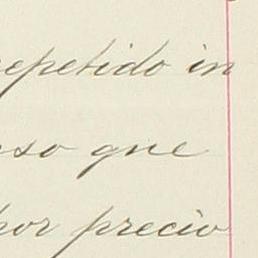 repetido in
so que
por precio